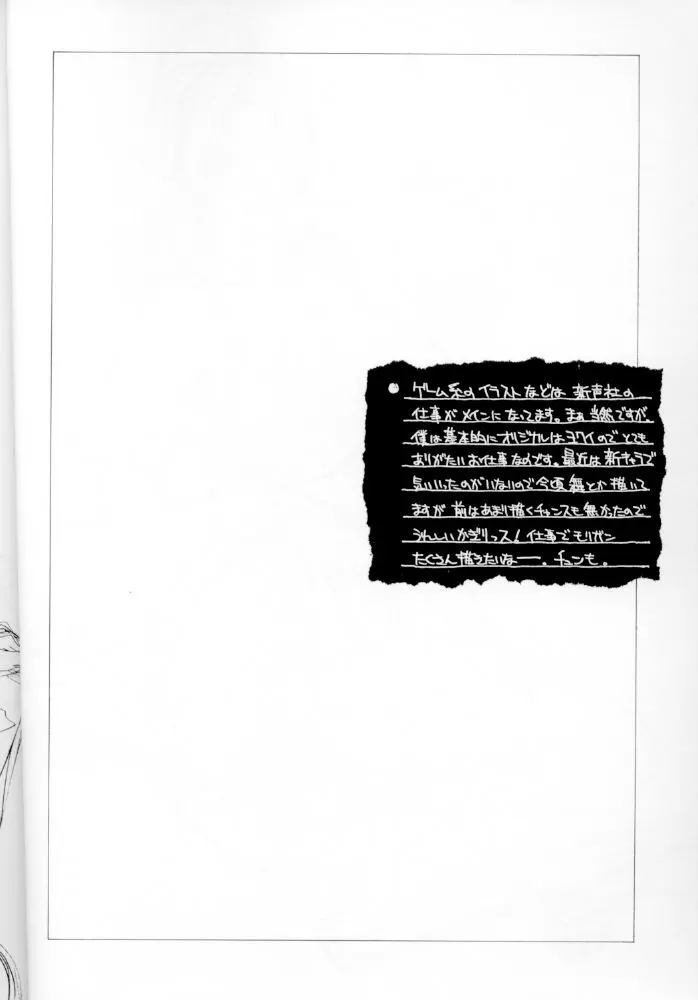 ● ゲーム系のイラストなどは 新声社の
仕事がメインになってます。まぁ当然ですが、
僕は基本的にオリジナルはヨワイのでとても
ありがたいお仕事なのです。最近は新キャラで
気にいったのがいないので今頃舞とか描いて
ますが 前はあまり描くチャンスも無かったので
うれしいかぎりっス!仕事でモリガン
たくさん描きたいなー。チュンも。